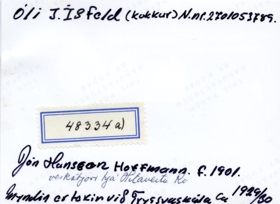 Óli J. Ísfeld (kokkur) N.nr. 2701053789.
48334 a)
Jón Hansson Hoffmann. f. 1901.
verkstjóri hjá Hitaveitu Rv
Myndin er tekin við Tryggvaskála ca 1929/30